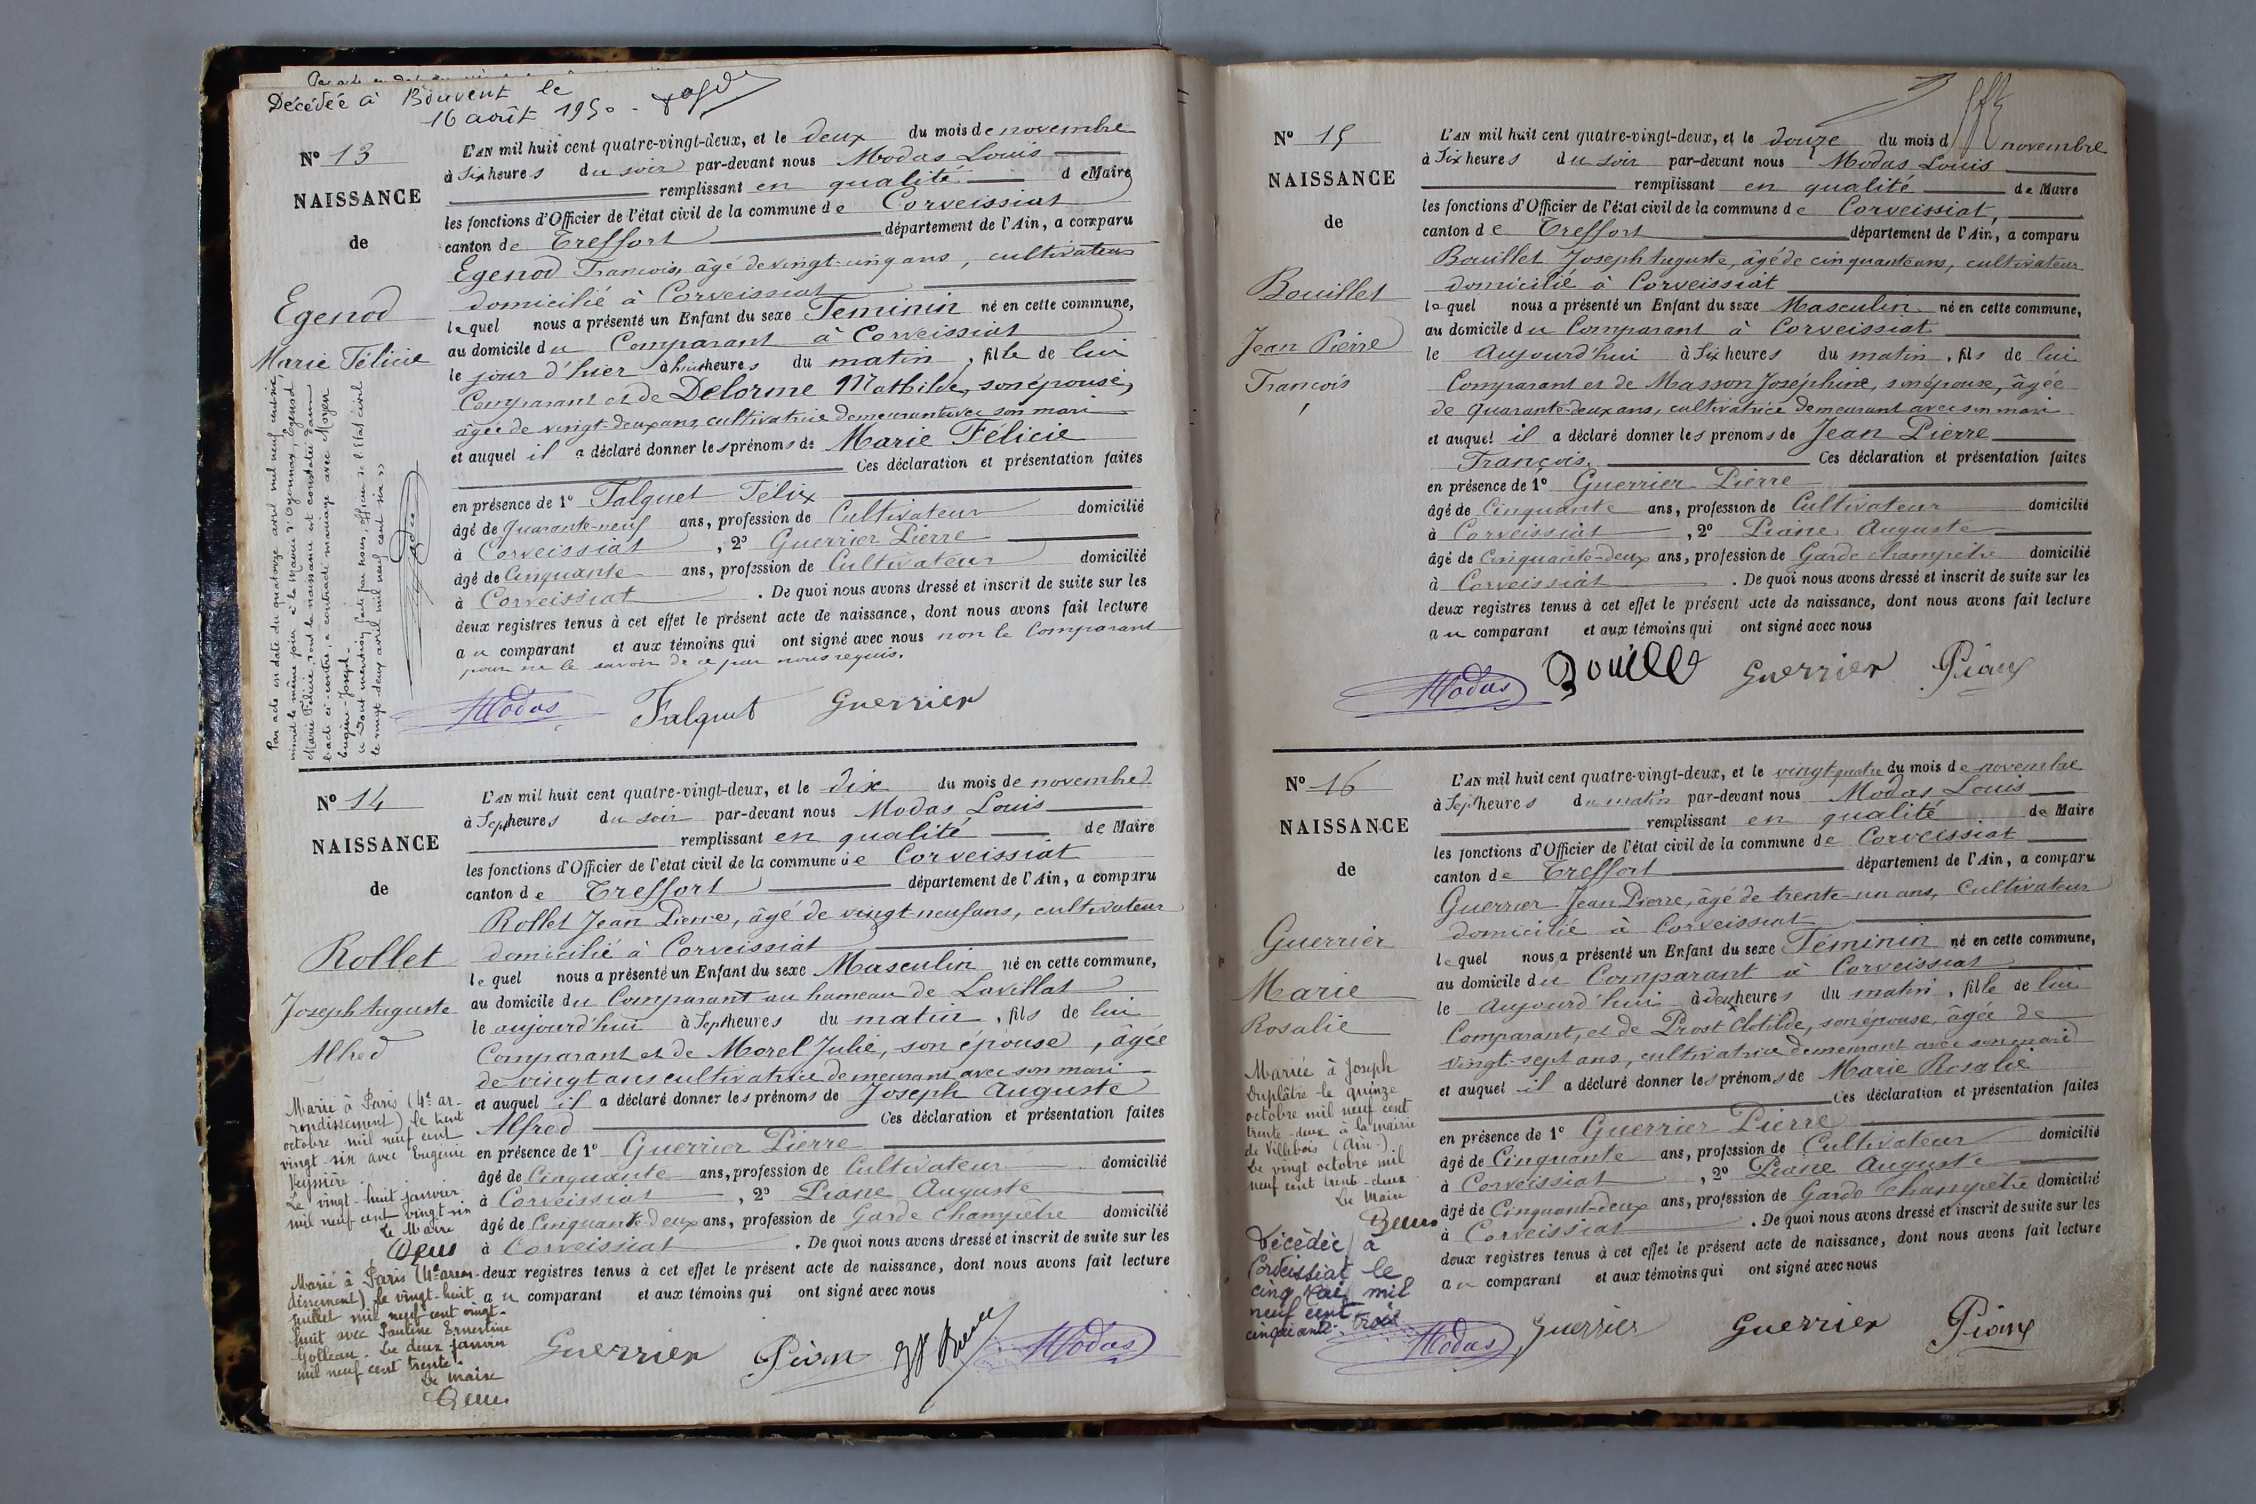 Décédée à Bouvent le
16 août 1950 -
N° 13
NAISSANCE
de
Egenod
Marie Félicie
Par acte en date du quatorze avril mil neuf cent six,
inscrit le même jour à la Mairie d'Oyonnax, Egenod
Marie Félicie, dont la naissance est constatée dans
l'acte ci-contre, a contracté mariage avec Moyen
Eugène-Joseph.
« Dont mention faite par nous, officier de l'état civil
le vingt-deux avril mil neuf cent six »
L'AN mil huit cent quatre-vingt-deux, et le deux du mois de novembre
à Six heures du soir par-devant nous Modas Louis
remplissant en qualité de Maire
les fonctions d'Officier de l'état civil de la commune de Corveissiat
canton de Treffort département de l'Ain, a comparu
Egenod François, âgé de vingt-cinq ans, cultivateur
domicilié à Corveissiat
lequel nous a présenté un Enfant du sexe Féminin né en cette commune,
au domicile du Comparant à Corveissiat
le jour d'hier à huit heures du matin, fille de lui
Comparant et de Delorme Mathilde, son épouse,
âgée de vingt-deux ans, cultivatrice demeurant avec son mari
et auquel il a déclaré donner les prénoms de Marie Félicie
Ces déclaration et présentation faites
en présence de 1° Falquet Félix
âgé de Quarante-neuf ans, profession de Cultivateur domicilié
à Corveissiat, 2° Guerrier Pierre
âgé de Cinquante ans, profession de Cultivateur domicilié
à Corveissiat. De quoi nous avons dressé et inscrit de suite sur les
deux registres tenus à cet effet le présent acte de naissance, dont nous avons fait lecture
au comparant et aux témoins qui ont signé avec nous non le Comparant
pour ne le savoir de ce par nous requis.
Modas Falquet Guerrier
N° 14
NAISSANCE
de
Rollet
Joseph Auguste
Alfred
Marié à Paris (4e ar-
rondissement) le trent
octobre mil neuf cent
vingt-six avec Eugenie
Veyssière.
Le vingt-huit janvier
mil neuf cent vingt-six
Le Maire
Marié à Paris (4e arron-
dissement) le vingt-huit
juillet mil neuf cent vingt-
huit avec Pauline Ernestine
Golleau. Le deux janvier
mil neuf cent trente.
Le Maire
L'AN mil huit cent quatre-vingt-deux, et le dix du mois de novembre
à Sept heures du soir par-devant nous Modas Louis
remplissant en qualité de Maire
les fonctions d'Officier de l'état civil de la commune de Corveissiat
canton de Treffort département de l'Ain, a comparu
Rollet Jean Pierre, âgé de vingt-neuf ans, cultivateur
domicilié à Corveissiat
lequel nous a présenté un Enfant du sexe Masculin né en cette commune,
au domicile du Comparant au hameau de Lavillat
le aujourd'hui à Sept heures du matin, fils de lui
Comparant et de Morel Julie, son épouse, âgée
de vingt ans cultivatrice demeurant avec son mari
et auquel il a déclaré donner les prénoms de Joseph Auguste
Alfred Ces déclaration et présentation faites
en présence de 1° Guerrier Pierre
âgé de Cinquante ans, profession de Cultivateur domicilié
à Corveissiat, 2° Piane Auguste
âgé de Cinquante-deux ans, profession de Garde Champêtre domicilié
à Corveissiat. De quoi nous avons dressé et inscrit de suite sur les
deux registres tenus à cet effet le présent acte de naissance, dont nous avons fait lecture
au comparant et aux témoins qui ont signé avec nous
Guerrier Modas
N° 15
NAISSANCE
de
Bouillet
Jean Pierre
François
L'AN mil huit cent quatre-vingt-deux, et le douze du mois d novembre
à Six heures du soir par-devant nous Modas Louis
remplissant en qualité de Maire
les fonctions d'Officier de l'état civil de la commune de Corveissiat,
canton de Treffort département de l'Ain, a comparu
Bouillet Joseph Auguste, âgé de cinquante ans, cultivateur
domicilié à Corveissiat
lequel nous a présenté un Enfant du sexe Masculin né en cette commune,
au domicile du Comparant à Corveissiat
le Aujourd'hui à Six heures du matin, fils de lui
Comparant et de Masson Joséphine, son épouse, âgée
de quarante-deux ans, cultivatrice demeurant avec son mari
et auquel il a déclaré donner les prénoms de Jean Pierre
François. Ces déclaration et présentation faites
en présence de 1° Guerrier Pierre
âgé de Cinquante ans, profession de Cultivateur domicilié
à Corveissiat, 2° Piane Auguste
âgé de Cinquante-deux ans, profession de Garde Champêtre domicilié
à Corveissiat. De quoi nous avons dressé et inscrit de suite sur les
deux registres tenus à cet effet le présent acte de naissance, dont nous avons fait lecture
au comparant et aux témoins qui ont signé avec nous
Modas Guerrier
N° 16
NAISSANCE
de
Guerrier
Marie
Rosalie
Mariée à Joseph
Duplâtre le quinze
octobre mil neuf cent
trente-deux à la mairie
de Villebois (Ain.)
Le vingt octobre mil
neuf cent trente-deux
Le Maire
Décédée à
Corveissiat le
cinq Mai mil
neuf cent
cinquante-trois
L'AN mil huit cent quatre-vingt-deux, et le vingt quatre du mois de novembre
à Sept heures du matin par-devant nous Modas Louis
remplissant en qualité de Maire
les fonctions d'Officier de l'état civil de la commune de Corveissiat
canton de Treffort département de l'Ain, a comparu
Guerrier Jean Pierre, âgé de trente-un ans, Cultivateur
domicilié à Corveissiat
lequel nous a présenté un Enfant du sexe Féminin né en cette commune,
au domicile du Comparant à Corveissiat
le Aujourd'hui à deux heures du matin, fille de lui
Comparant, et de Prost Clotilde, son épouse, âgée de
vingt-sept ans, cultivatrice demeurant avec son mari
et auquel il a déclaré donner les prénoms de Marie Rosalie
Ces déclaration et présentation faites
en présence de 1° Guerrier Pierre
âgé de Cinquante ans, profession de Cultivateur domicilié
à Corveissiat, 2° Piane Auguste
âgé de Cinquante-deux ans, profession de Garde Champêtre domicilié
à Corveissiat. De quoi nous avons dressé et inscrit de suite sur les
deux registres tenus à cet effet le présent acte de naissance, dont nous avons fait lecture
au comparant et aux témoins qui ont signé avec nous
Modas Guerrier Guerrier